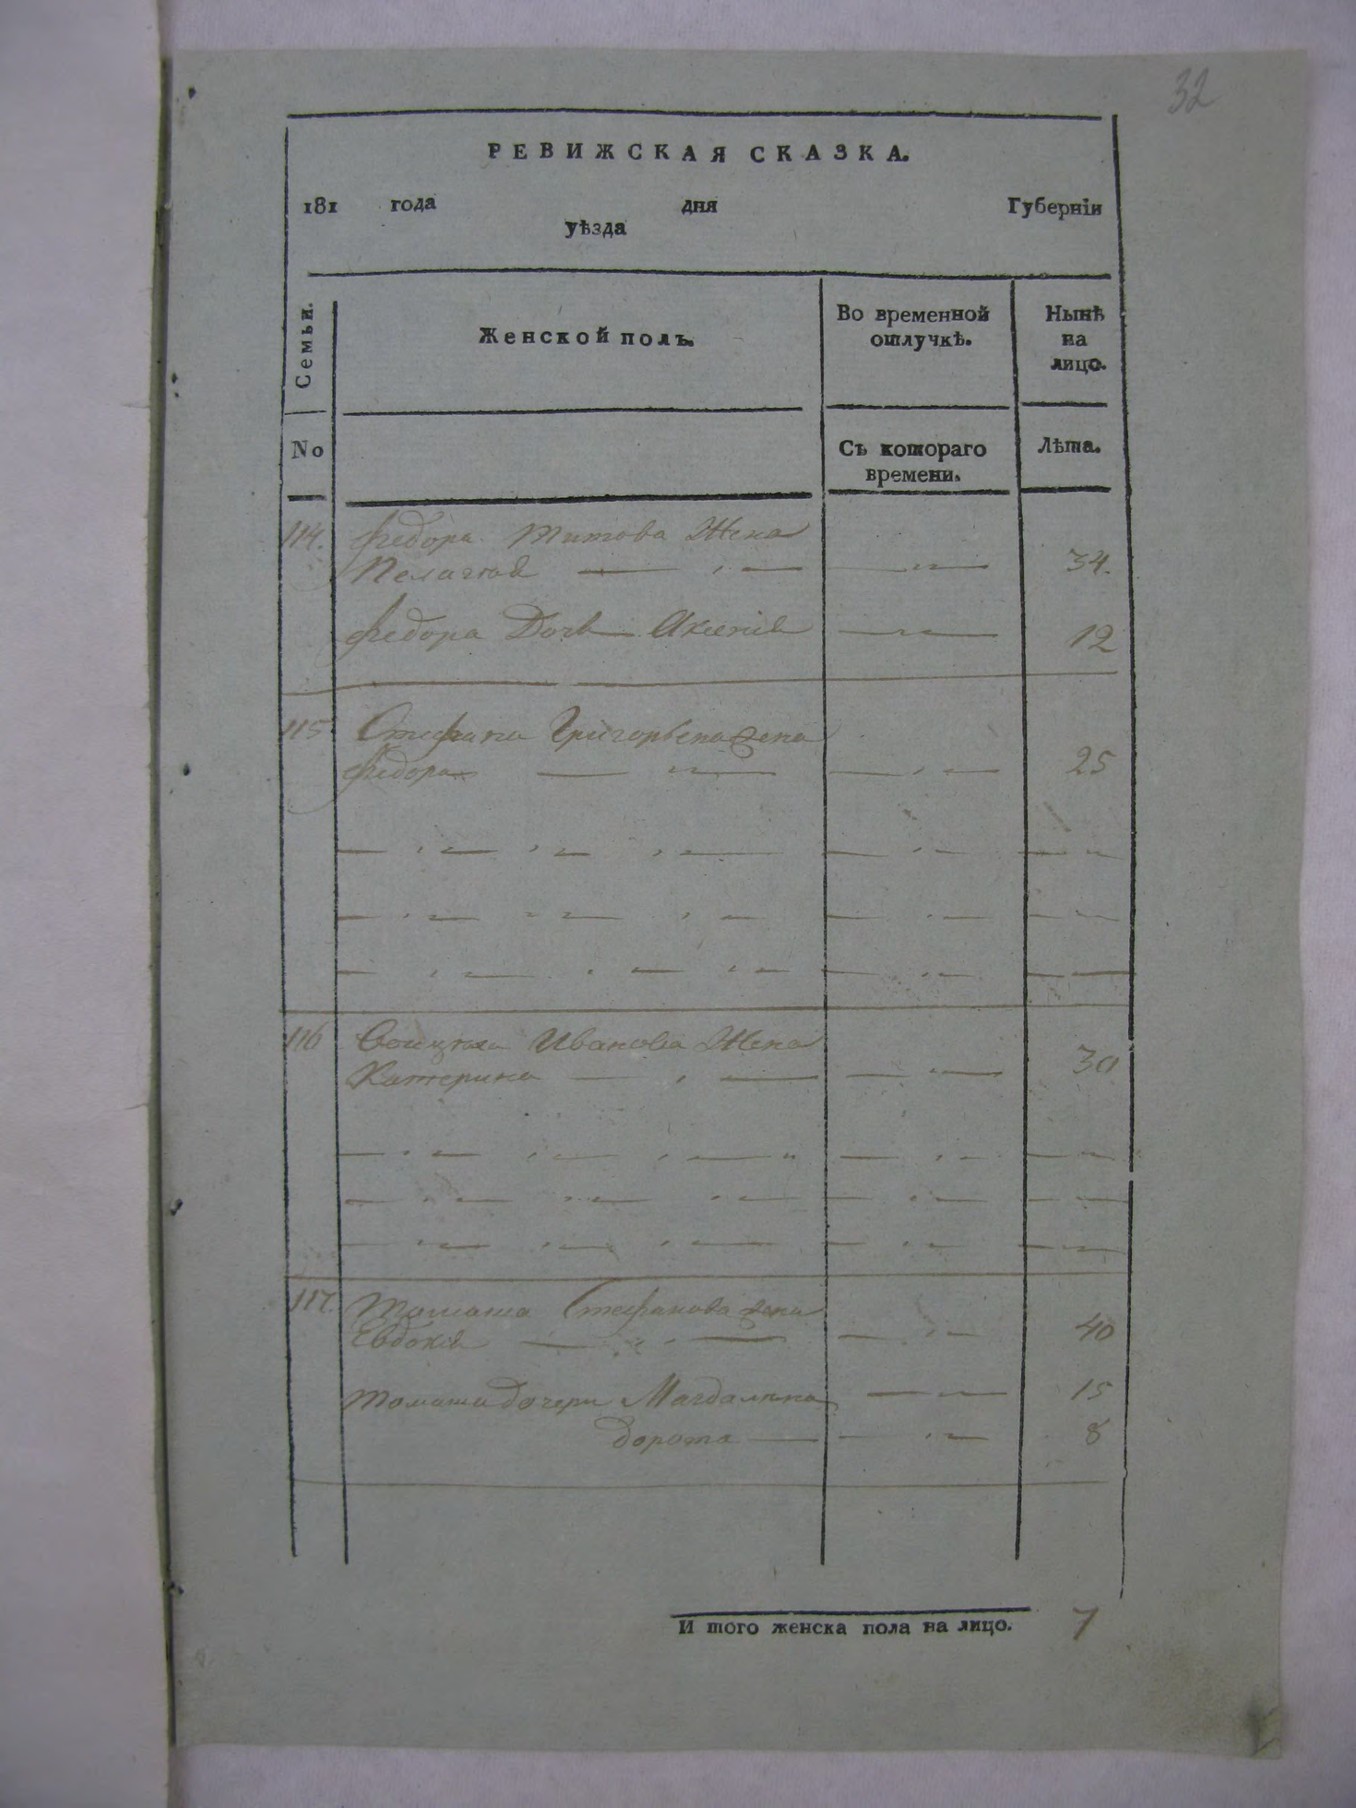 32
РЕВИЖСКАЯ СКАЗКА.
181 года дня Губерніи
уѣзда
Семьи.
Женской полъ.
Во временной отлучкѣ.
Нынѣ на лицо.
No
Съ котораго времени.
Лѣта.
114. Федора Титова Жена
Пелагия 34.
Федора Дочь Аксения 12
115 Стефана Григорьева жена
Федора 25
116 Ивanова Жена
Катерина 30
117. Томаша Стефанова жена
Евдокия 40
Томаша дочери Магдалена 15
дорота 8
И того женска пола на лицо. 7